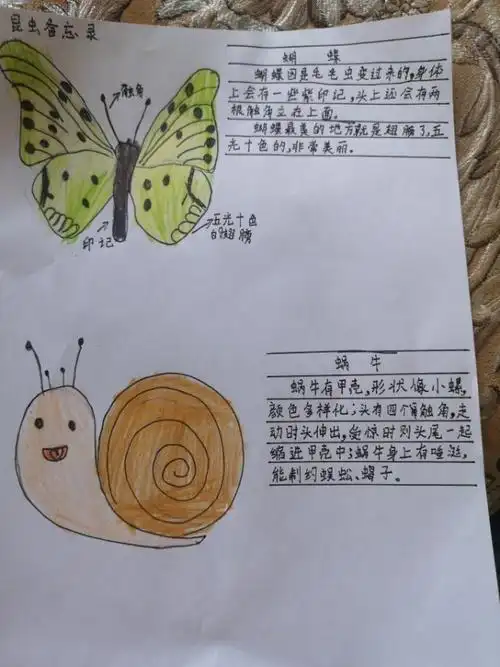 昆虫备忘录
蝴 蝶
蝴蝶因是毛毛虫变过来的,身体
上会有一些紫印记,头上还会有两
根触角立在上面。
蝴蝶最美的地方就是翅膀了,五
光十色的,非常美丽。
触角
印记
五光十色
的翅膀
蜗 牛
蜗牛有甲壳,形状像小螺,
颜色多样化;头有四个触角,走
动时头伸出,受惊时则头尾一起
缩进甲壳中;蜗牛身上有唾涎,
能制约蜈蚣、蝎子。